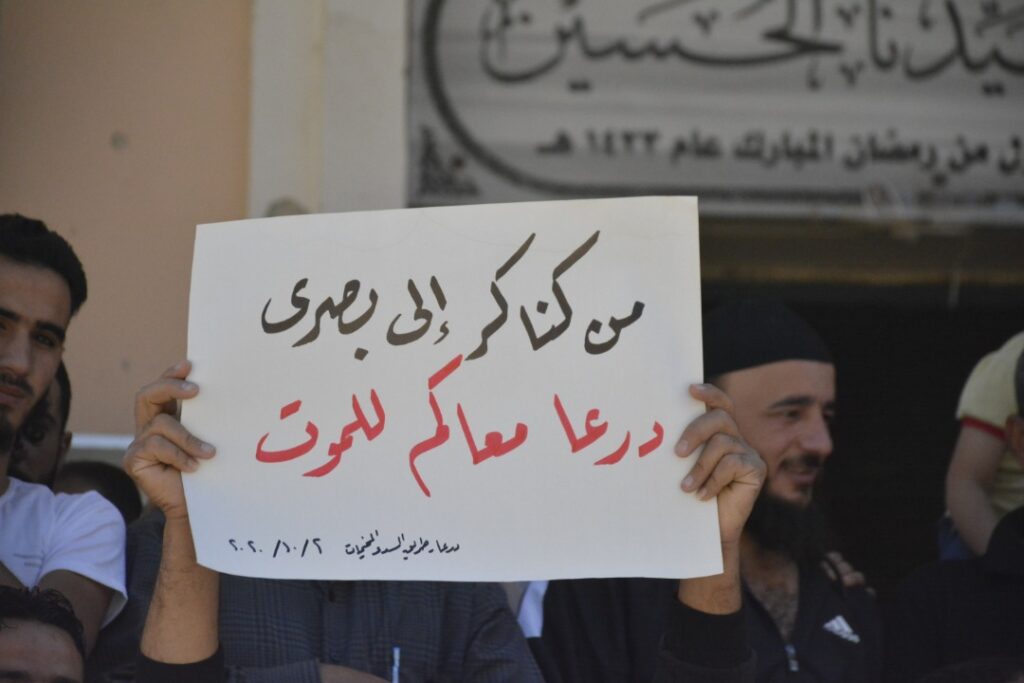 سيدنا الحسين
من رمضان المبارك عام ١٤٣٣ هـ
من كناكر إلى بصرى
درعا معاكم للموت
درعا - طريق السد والمخيمات ٢/١٠/٢٠٢٠